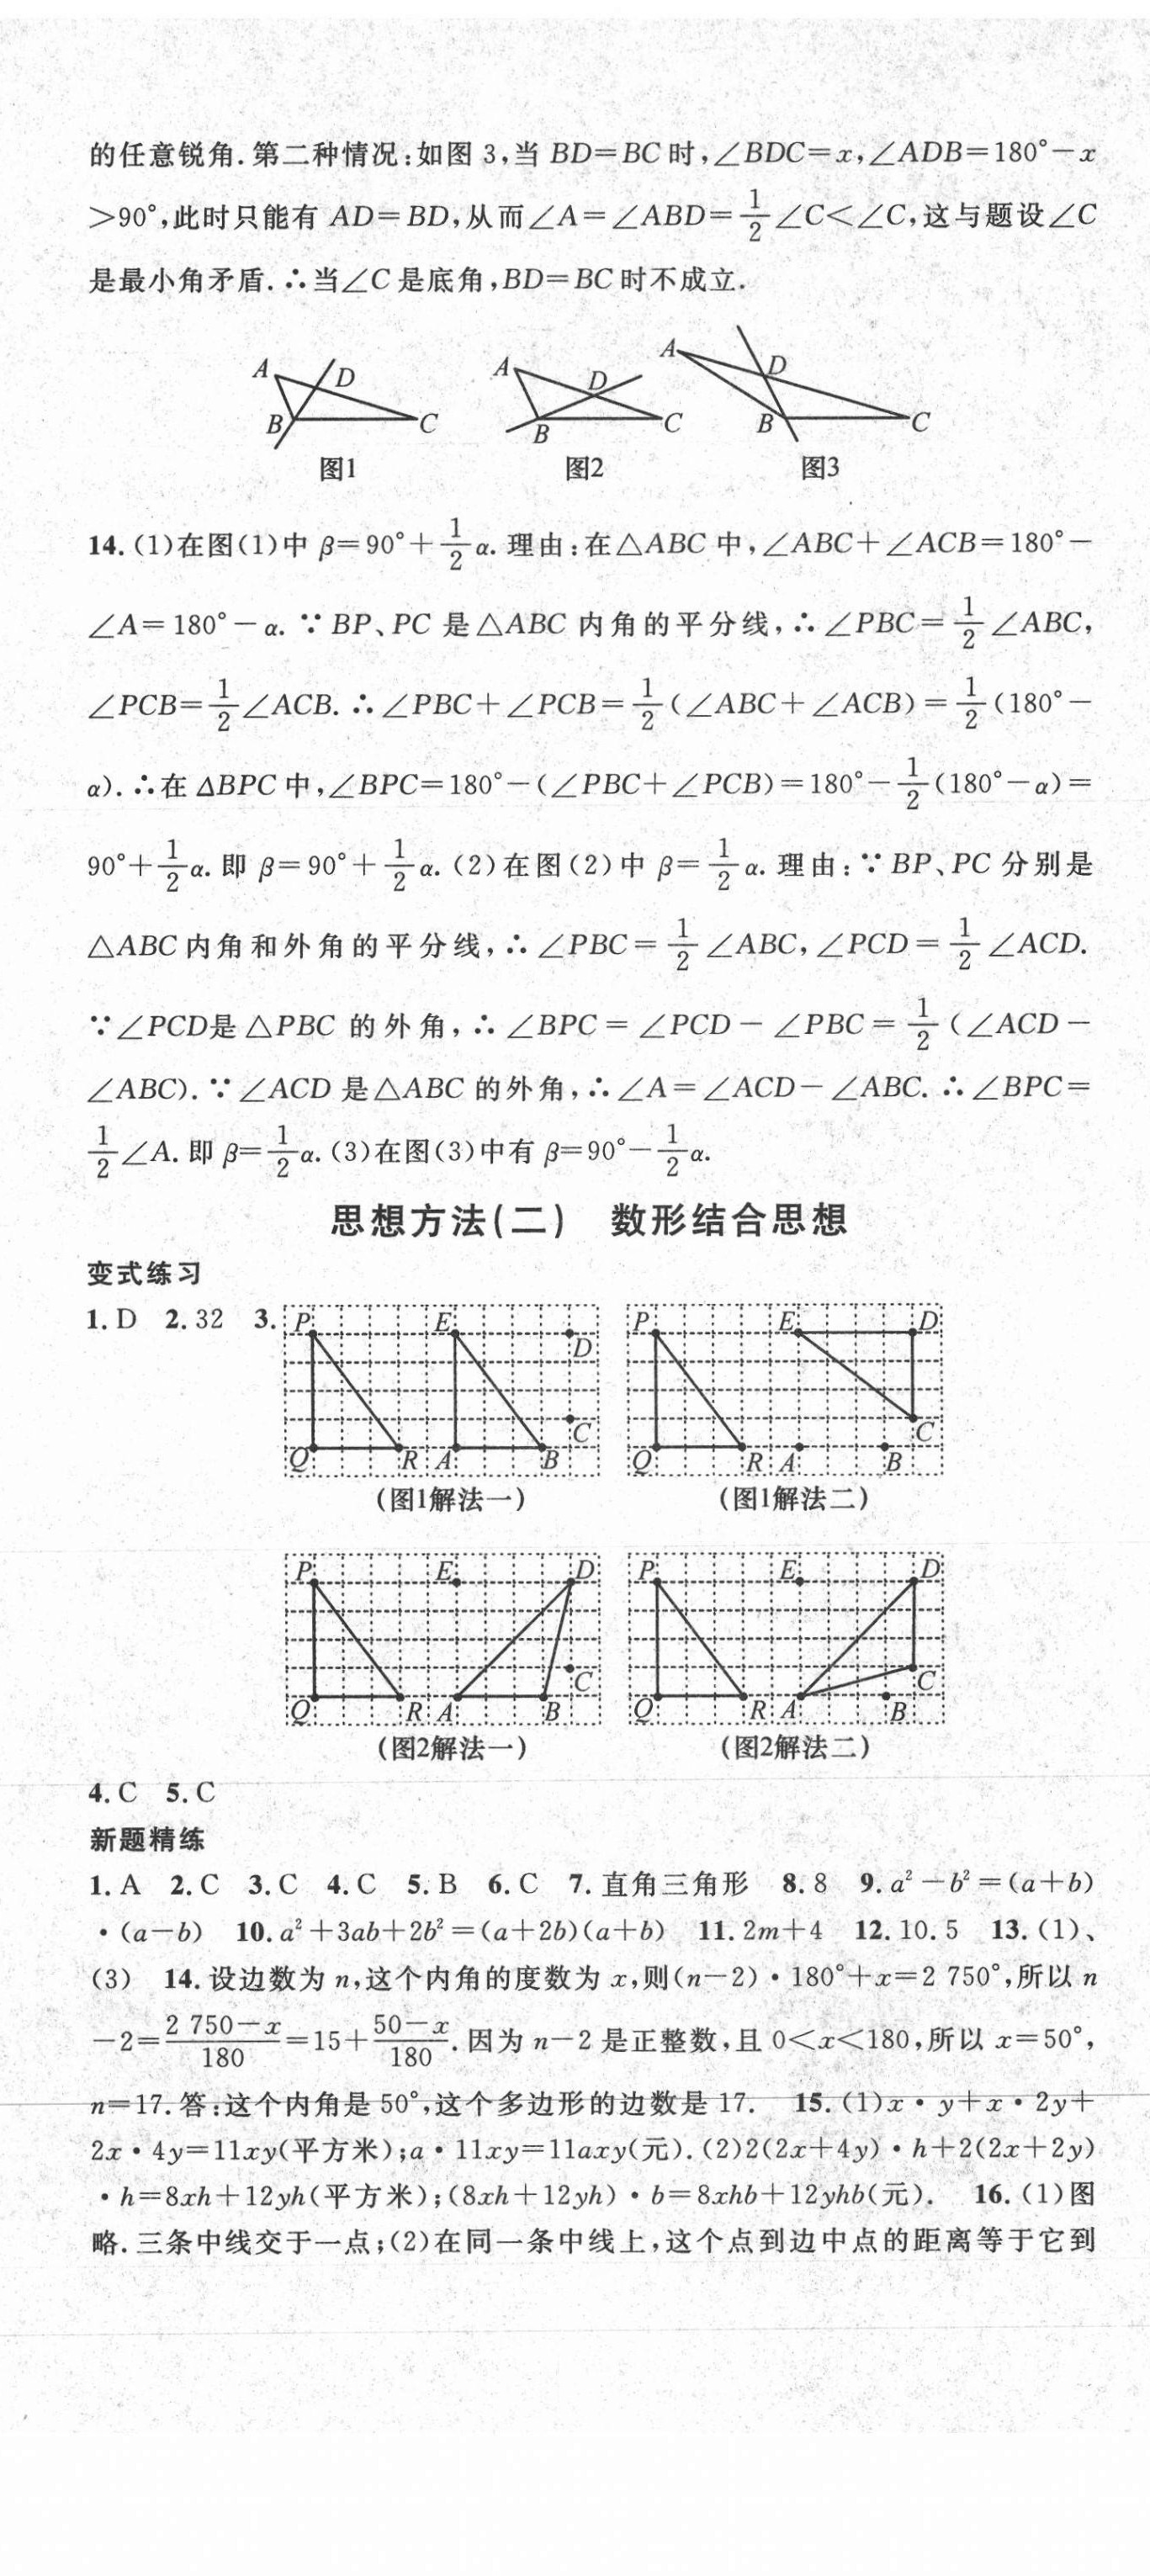 的任意锐角.第二种情况:如图 3,当 BD=BC 时,∠BDC=x,∠ADB=180°-x
>90°,此时只能有 AD=BD,从而∠A=∠ABD=1/2∠C<∠C,这与题设∠C
是最小角矛盾.∴当∠C 是底角,BD=BC 时不成立.
A D B C A D B C A D B C
图1 图2 图3
14.(1)在图(1)中 β=90°+1/2α.理由:在△ABC 中,∠ABC+∠ACB=180°-
∠A=180°-α.∵BP、PC 是△ABC 内角的平分线,∴∠PBC=1/2∠ABC,
∠PCB=1/2∠ACB.∴∠PBC+∠PCB=1/2(∠ABC+∠ACB)=1/2(180°-
α).∴在△BPC 中,∠BPC=180°-(∠PBC+∠PCB)=180°-1/2(180°-α)=
90°+1/2α.即 β=90°+1/2α.(2)在图(2)中 β=1/2α.理由:∵BP、PC 分别是
△ABC 内角和外角的平分线,∴∠PBC=1/2∠ABC,∠PCD=1/2∠ACD.
∵∠PCD是△PBC 的外角,∴∠BPC=∠PCD-∠PBC=1/2(∠ACD-
∠ABC).∵∠ACD 是△ABC 的外角,∴∠A=∠ACD-∠ABC.∴∠BPC=
1/2∠A.即 β=1/2α.(3)在图(3)中有 β=90°-1/2α.
思想方法(二) 数形结合思想
变式练习
1.D 2.32 3.
P E D C Q R A B P E D C Q R A B
(图1解法一) (图1解法二)
P E D C Q R A B P E D C Q R A B
(图2解法一) (图2解法二)
4.C 5.C
新题精练
1.A 2.C 3.C 4.C 5.B 6.C 7.直角三角形 8.8 9.a²-b²=(a+b)
·(a-b) 10.a²+3ab+2b²=(a+2b)(a+b) 11.2m+4 12.10.5 13.(1)、
(3) 14.设边数为 n,这个内角的度数为 x,则(n-2)·180°+x=2 750°,所以 n
-2=(2 750-x)/180=15+(50-x)/180.因为 n-2 是正整数,且 0<x<180,所以 x=50°,
n=17.答:这个内角是 50°,这个多边形的边数是 17. 15.(1)x·y+x·2y+
2x·4y=11xy(平方米);a·11xy=11axy(元).(2)2(2x+4y)·h+2(2x+2y)
·h=8xh+12yh(平方米);(8xh+12yh)·b=8xhb+12yhb(元). 16.(1)图
略.三条中线交于一点;(2)在同一条中线上,这个点到边中点的距离等于它到